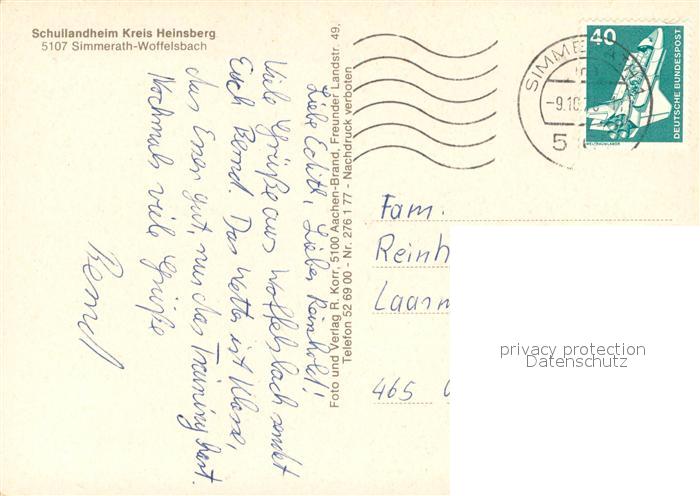 Schullandheim Kreis Heinsberg
5107 Simmerath-Woffelsbach
Liebe Edith, Lieber Reinhold!
Viele Grüße aus Woffelsbach sendet
Euch Bernd. Das Wetter ist Klasse,
das Essen gut, nur das Training hart.
Nochmals viele Grüße
Bernd
Foto und Verlag R. Korr, 5100 Aachen-Brand, Freunder Landstr. 49,
Telefon 52 69 00 - Nr. 276 1 77 - Nachdruck verboten
SIMMERATH
-9.10.
40
DEUTSCHE BUNDESPOST
WELTRAUMLABOR
Fam.
Reinh
Laarm
465
privacy protection
Datenschutz